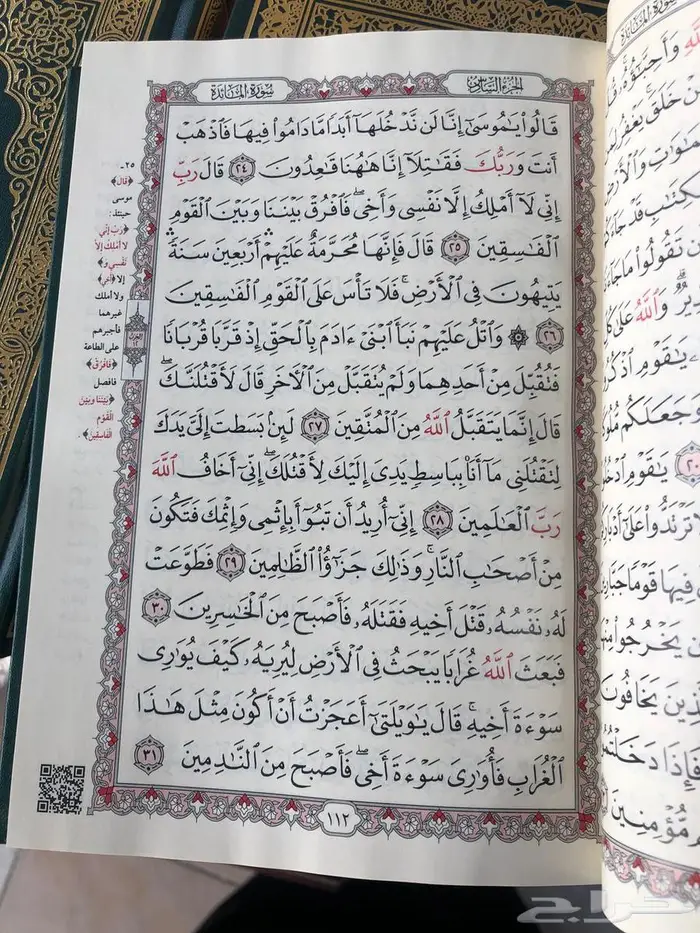 الجزء السادس
سورة المائدة
قَالُوا۟ يَٰمُوسَىٰٓ إِنَّا لَن نَّدْخُلَهَآ أَبَدًا مَّا دَامُوا۟ فِيهَا فَٱذْهَبْ
أَنتَ وَرَبُّكَ فَقَٰتِلَآ إِنَّا هَٰهُنَا قَٰعِدُونَ ٢٤ قَالَ رَبِّ
إِنِّى لَآ أَمْلِكُ إِلَّا نَفْسِى وَأَخِى ۖ فَٱفْرُقْ بَيْنَنَا وَبَيْنَ ٱلْقَوْمِ
ٱلْفَٰسِقِينَ ٢٥ قَالَ فَإِنَّهَا مُحَرَّمَةٌ عَلَيْهِمْ ۛ أَرْبَعِينَ سَنَةً ۛ
يَتِيهُونَ فِى ٱلْأَرْضِ ۚ فَلَا تَأْسَ عَلَى ٱلْقَوْمِ ٱلْفَٰسِقِينَ
٢٦ ۞ وَٱتْلُ عَلَيْهِمْ نَبَأَ ٱبْنَىْ ءَادَمَ بِٱلْحَقِّ إِذْ قَرَّبَا قُرْبَانًا
فَتُقُبِّلَ مِنْ أَحَدِهِمَا وَلَمْ يُتَقَبَّلْ مِنَ ٱلْءَاخَرِ قَالَ لَأَقْتُلَنَّكَ ۖ
قَالَ إِنَّمَا يَتَقَبَّلُ ٱللَّهُ مِنَ ٱلْمُتَّقِينَ ٢٧ لَئِنۢ بَسَطتَ إِلَىَّ يَدَكَ
لِتَقْتُلَنِى مَآ أَنَا۠ بِبَاسِطٍ يَدِىَ إِلَيْكَ لِأَقْتُلَكَ ۖ إِنِّىٓ أَخَافُ ٱللَّهَ
رَبَّ ٱلْعَٰلَمِينَ ٢٨ إِنِّىٓ أُرِيدُ أَن تَبُوٓأَ بِإِثْمِى وَإِثْمِكَ فَتَكُونَ
مِنْ أَصْحَٰبِ ٱلنَّارِ ۚ وَذَٰلِكَ جَزَٰٓؤُا۟ ٱلظَّٰلِمِينَ ٢٩ فَطَوَّعَتْ
لَهُۥ نَفْسُهُۥ قَتْلَ أَخِيهِ فَقَتَلَهُۥ فَأَصْبَحَ مِنَ ٱلْخَٰسِرِينَ ٣٠
فَبَعَثَ ٱللَّهُ غُرَابًا يَبْحَثُ فِى ٱلْأَرْضِ لِيُرِيَهُۥ كَيْفَ يُوَٰرِى
سَوْءَةَ أَخِيهِ ۚ قَالَ يَٰوَيْلَتَىٰٓ أَعَجَزْتُ أَنْ أَكُونَ مِثْلَ هَٰذَا
ٱلْغُرَابِ فَأُوَٰرِىَ سَوْءَةَ أَخِى ۖ فَأَصْبَحَ مِنَ ٱلنَّٰدِمِينَ ٣١
١١٢
٢٥-
﴿قال﴾
موسى
حينئذ:
﴿رَبِّ إِنِّي
لَا أَمْلِكُ إِلَّا
نَفْسِي وَ﴾
إلا ﴿أَخِي﴾
ولا أملك
غيرهما
فأجبرهم
على الطاعة
﴿فَافْرُقْ﴾
فافصل
﴿بَيْنَنَا وَبَيْنَ
الْقَوْمِ
الْفَاسِقِينَ﴾.
سورة المائدة
حراج